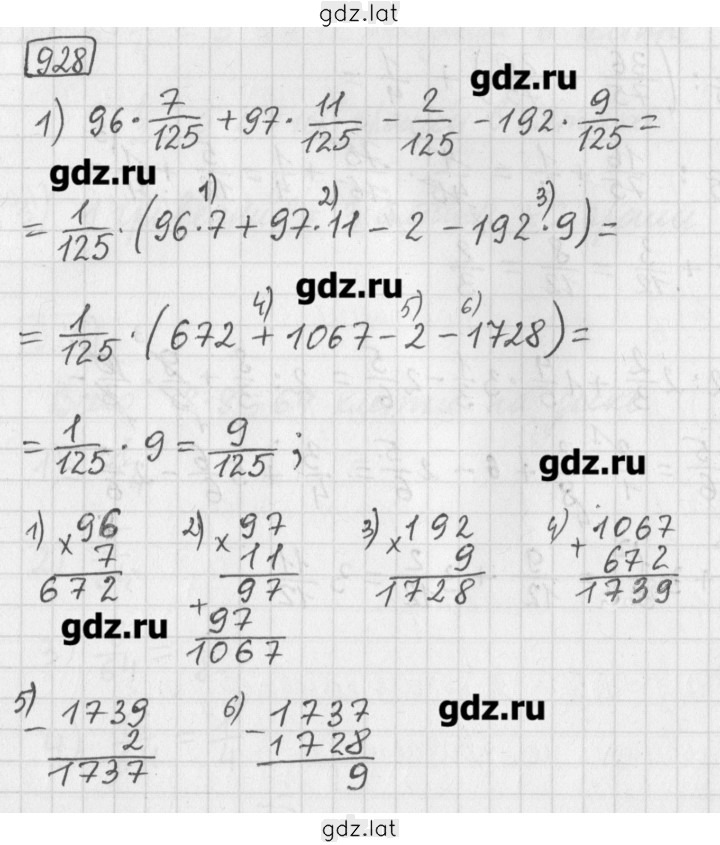 gdz.lat
928
gdz.ru
1) 96 · 7/125 + 97 · 11/125 - 2/125 - 192 · 9/125 =
gdz.ru
1) 2) 3)
= 1/125 · (96·7 + 97·11 - 2 - 192·9) =
gdz.ru
4) 5) 6)
= 1/125 · (672 + 1067 - 2 - 1728) =
= 1/125 · 9 = 9/125 ;
gdz.ru
1) × 96
7
672
2) × 97
11
97
+ 97
1067
3) × 192
9
1728
4) + 1067
672
1739
gdz.ru
5) - 1739
2
1737
6) - 1737
1728
9
gdz.ru
gdz.lat